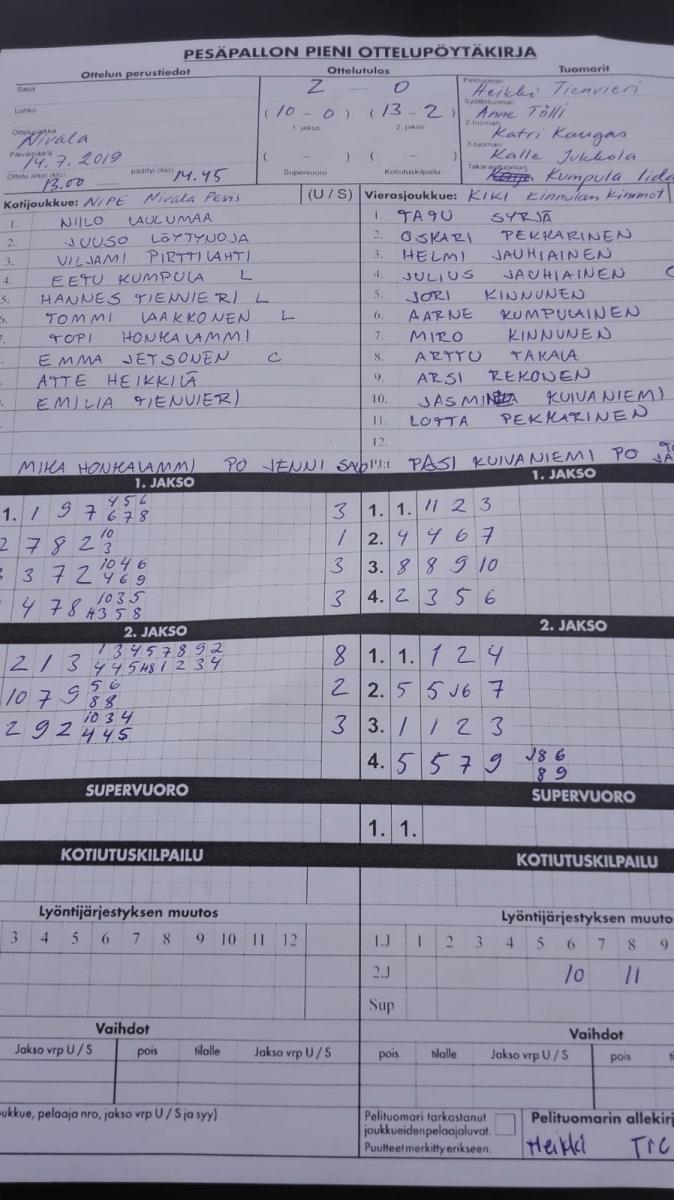 PESÄPALLON PIENI OTTELUPÖYTÄKIRJA
Ottelun perustiedot Ottelutulos Tuomarit
Sarja 2 - 0 Pelituomari Heikki Tienvieri
Lohko (10 - 0) (13 - 2) Syöttötuomari Anne Tölli
1. jakso 2. jakso 2-tuomari Katri Kangas
Ottelupaikka Nivala 3-tuomari Kalle Jukkola
Päivämäärä 14.7.2019 ( - ) ( - ) Takarajatuomari Kumpula Iida
Ottelu alkoi (klo) 13.00 päättyi (klo) 14.45 Supervuoro Kotiutuskilpailu
Kotijoukkue: NiPE Nivala Pesis (U / S) Vierasjoukkue: KiKi Kinnulan Kimmot
1. NIILO LAULUMAA 1. TATU SYRJÄ
2. JUUSO LÖYTYNOJA 2. OSKARI PEKKARINEN
3. VILJAMI PIRTTILAHTI 3. HELMI JAUHIAINEN
4. EETU KUMPULA L 4. JULIUS JAUHIAINEN C
5. HANNES TIENVIERI L 5. JORI KINNUNEN
6. TOMMI LAAKKONEN L 6. AARNE KUMPULAINEN
7. TOPI HONKALAMMI 7. MIRO KINNUNEN
EMMA JETSONEN C 8. ARTTU TAKALA
ATTE HEIKKILÄ 9. ARSI REKONEN
EMILIA TIENVIERI 10. JASMI KUIVANIEMI
11. LOTTA PEKKARINEN
12.
MIKA HONKALAMMI PO JENNI PJ:t PASI KUIVANIEMI PO
1. JAKSO 1. JAKSO
1. 1 9 7 4 5 6 3 1. 1. 11 2 3
6 7 8
2 7 8 2 10 1 2. 4 4 6 7
3
3 3 7 2 10 4 6 3 3. 8 8 9 10
4 6 9
4 7 8 10 3 5 3 4. 2 3 5 6
H3 5 8
2. JAKSO 2. JAKSO
2 1 3 1 3 4 5 7 8 9 2 8 1. 1. 1 2 4
4 4 5 H8 1 2 3 4
10 7 9 5 6 2 2. 5 5 J6 7
8 8
2 9 2 10 3 4 3 3. 1 1 2 3
4 4 5
4. 5 5 7 9 J8 6
8 9
SUPERVUORO SUPERVUORO
1. 1.
KOTIUTUSKILPAILU KOTIUTUSKILPAILU
Lyöntijärjestyksen muutos Lyöntijärjestyksen muuto
3 4 5 6 7 8 9 10 11 12 1.J 1 2 3 4 5 6 7 8 9
2.J 10 11
Sup
Vaihdot Vaihdot
Jakso vrp U / S pois tilalle Jakso vrp U / S pois tilalle Jakso vrp U / S pois
ukkue, pelaaja nro, jakso vrp U / S ja syy) Pelituomari tarkastanut Pelituomarin allekirj
joukkueidenpelaajaluvat.
Puutteet merkitty erikseen. Heikki